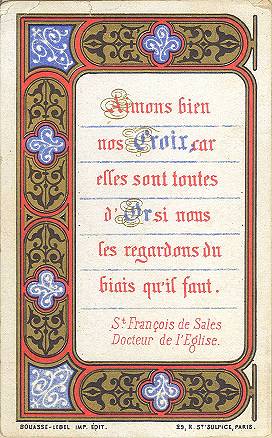 Aimons bien
nos Croix, car
elles sont toutes
d'Or si nous
les regardons du
biais qu'il faut.
St François de Sales
Docteur de l'Eglise.
BOUASSE-LEBEL IMP. ÉDIT.
29, R. ST SULPICE, PARIS.